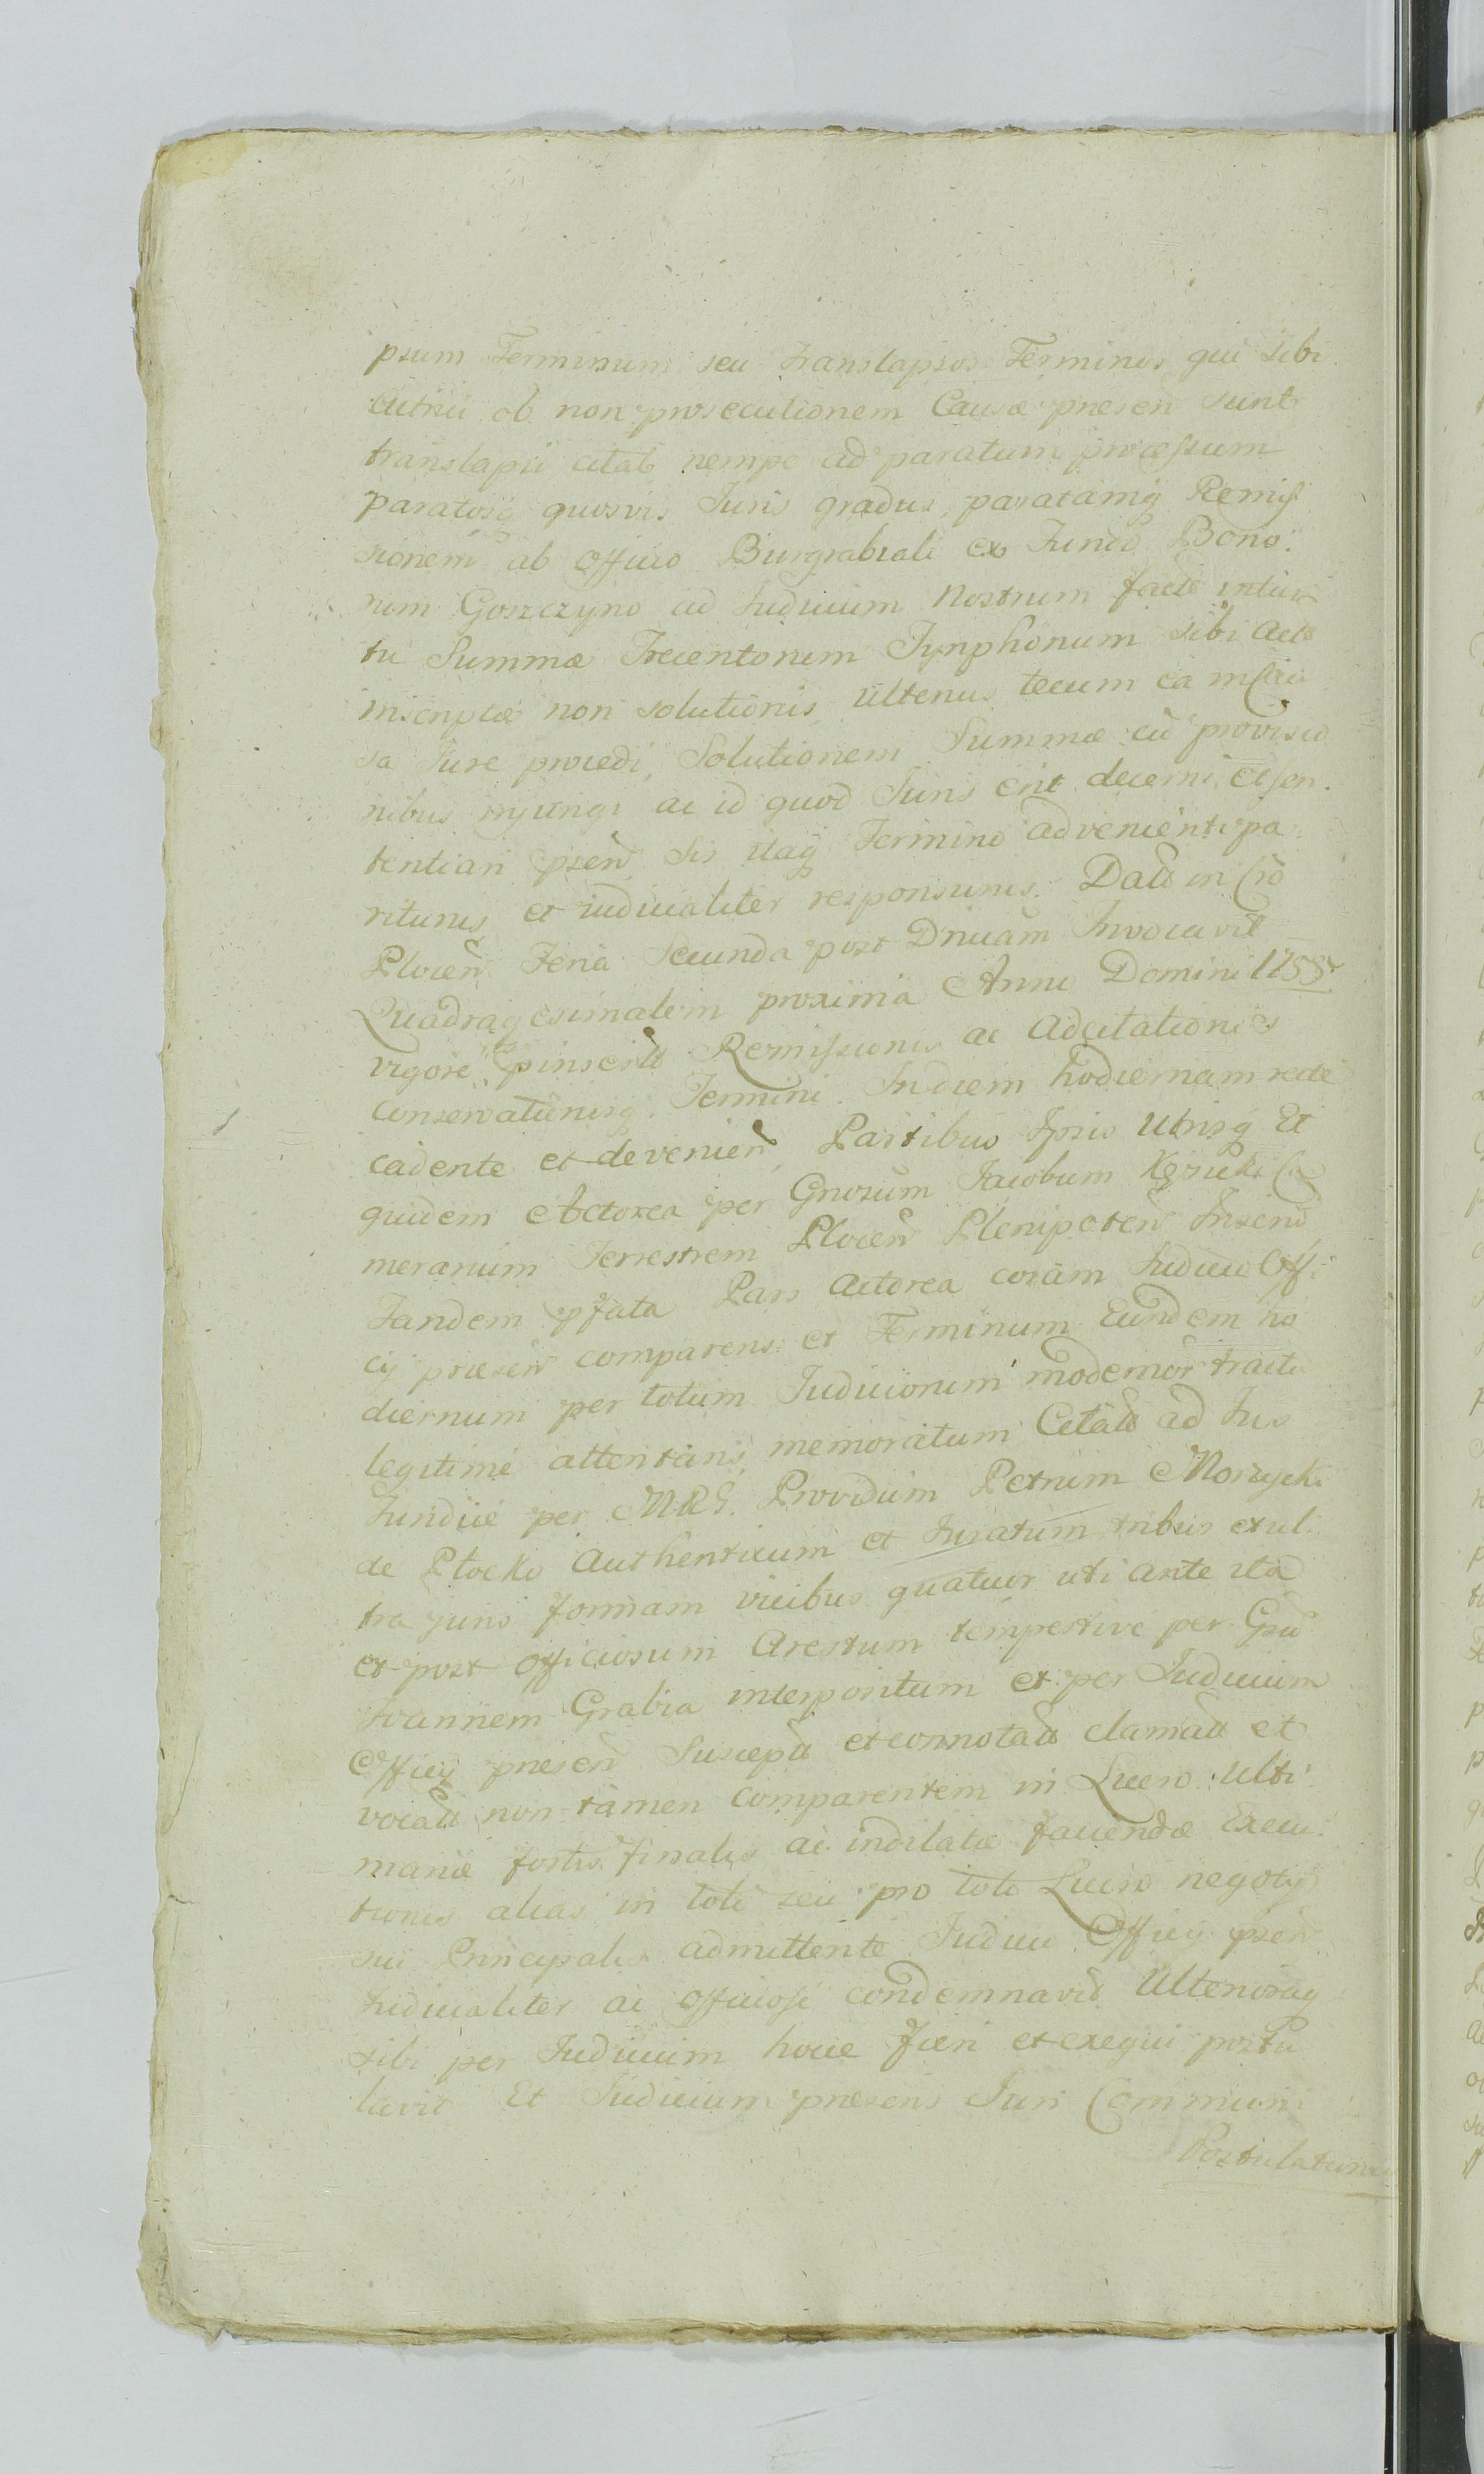 psum Terminum seu translapsos Terminos qui sibi
ob non prosecutionem Causæ præsen sunt
translapsi citat nempe ad paratum processum
paratosq quosvis Juris gradus, paratamq Remis
sionem ab Officio Burgrabiali ex Fundo Bono
rum Goszczyno ad Judicium Nostrum facto intui
tu Summæ Trecentorum Tynphonum sibi Act
inscriptæ non solutionis, Ulterius tecum ea in Cau
sa Jure procedi, Solutionem Summæ cū provisio
nibus injungi ac id quod Juris erit decerni et sen
tentiari psen Sis itaq Termino adveniente pa
riturus et iudicialiter responsurus. Datt in Cro
Plocen Feria Secunda post Dnicam Invocavit
Quadragesimalem proxima Anno Domini 1755
vigore pinserto Remissionis ac Adcitationis
Conservationisq Termini. In diem hodiernam recte
cadente et devenien, Partibus Ipsis Utrisq Et
quidem Actorea per Gnosum Jacobum Ca
merarium Terrestrem Plocen Plenipoten Inseno
Tandem pfata Pars Actorea coram Judicio Offi
cij præsen comparens et Terminum Eundem ho
diernum per totum Judiciorum modernor tractu
legitime attentans, memoratum Citatt ad Jus
Juridice per MRG. Providum Petrum Morzycki
de Plocko Authenticum et Juratum tribus et ul
tra juris formam vicibus quatuor uti ante ita
et post Officiosum Arestum tempestive per Gsu
Joannem Grabia interpositum et per Judicium
Officij præsen Susceptt et connotatt clamatt et
vocatt non tamen comparentem in Lucro Ulti
mariæ fortis finalis ac indilatæ faciendæ Execu
tionis alias in toto seu pro toto Lucro negotij
sui Principalis admittente Judicio Officij psen
Judicialiter ac Officiose condemnavit Ulteriusq
sibi per Judicium hocce fieri et exequi postu
lavit Et Judicium præsens Juri Communi
Postulationi